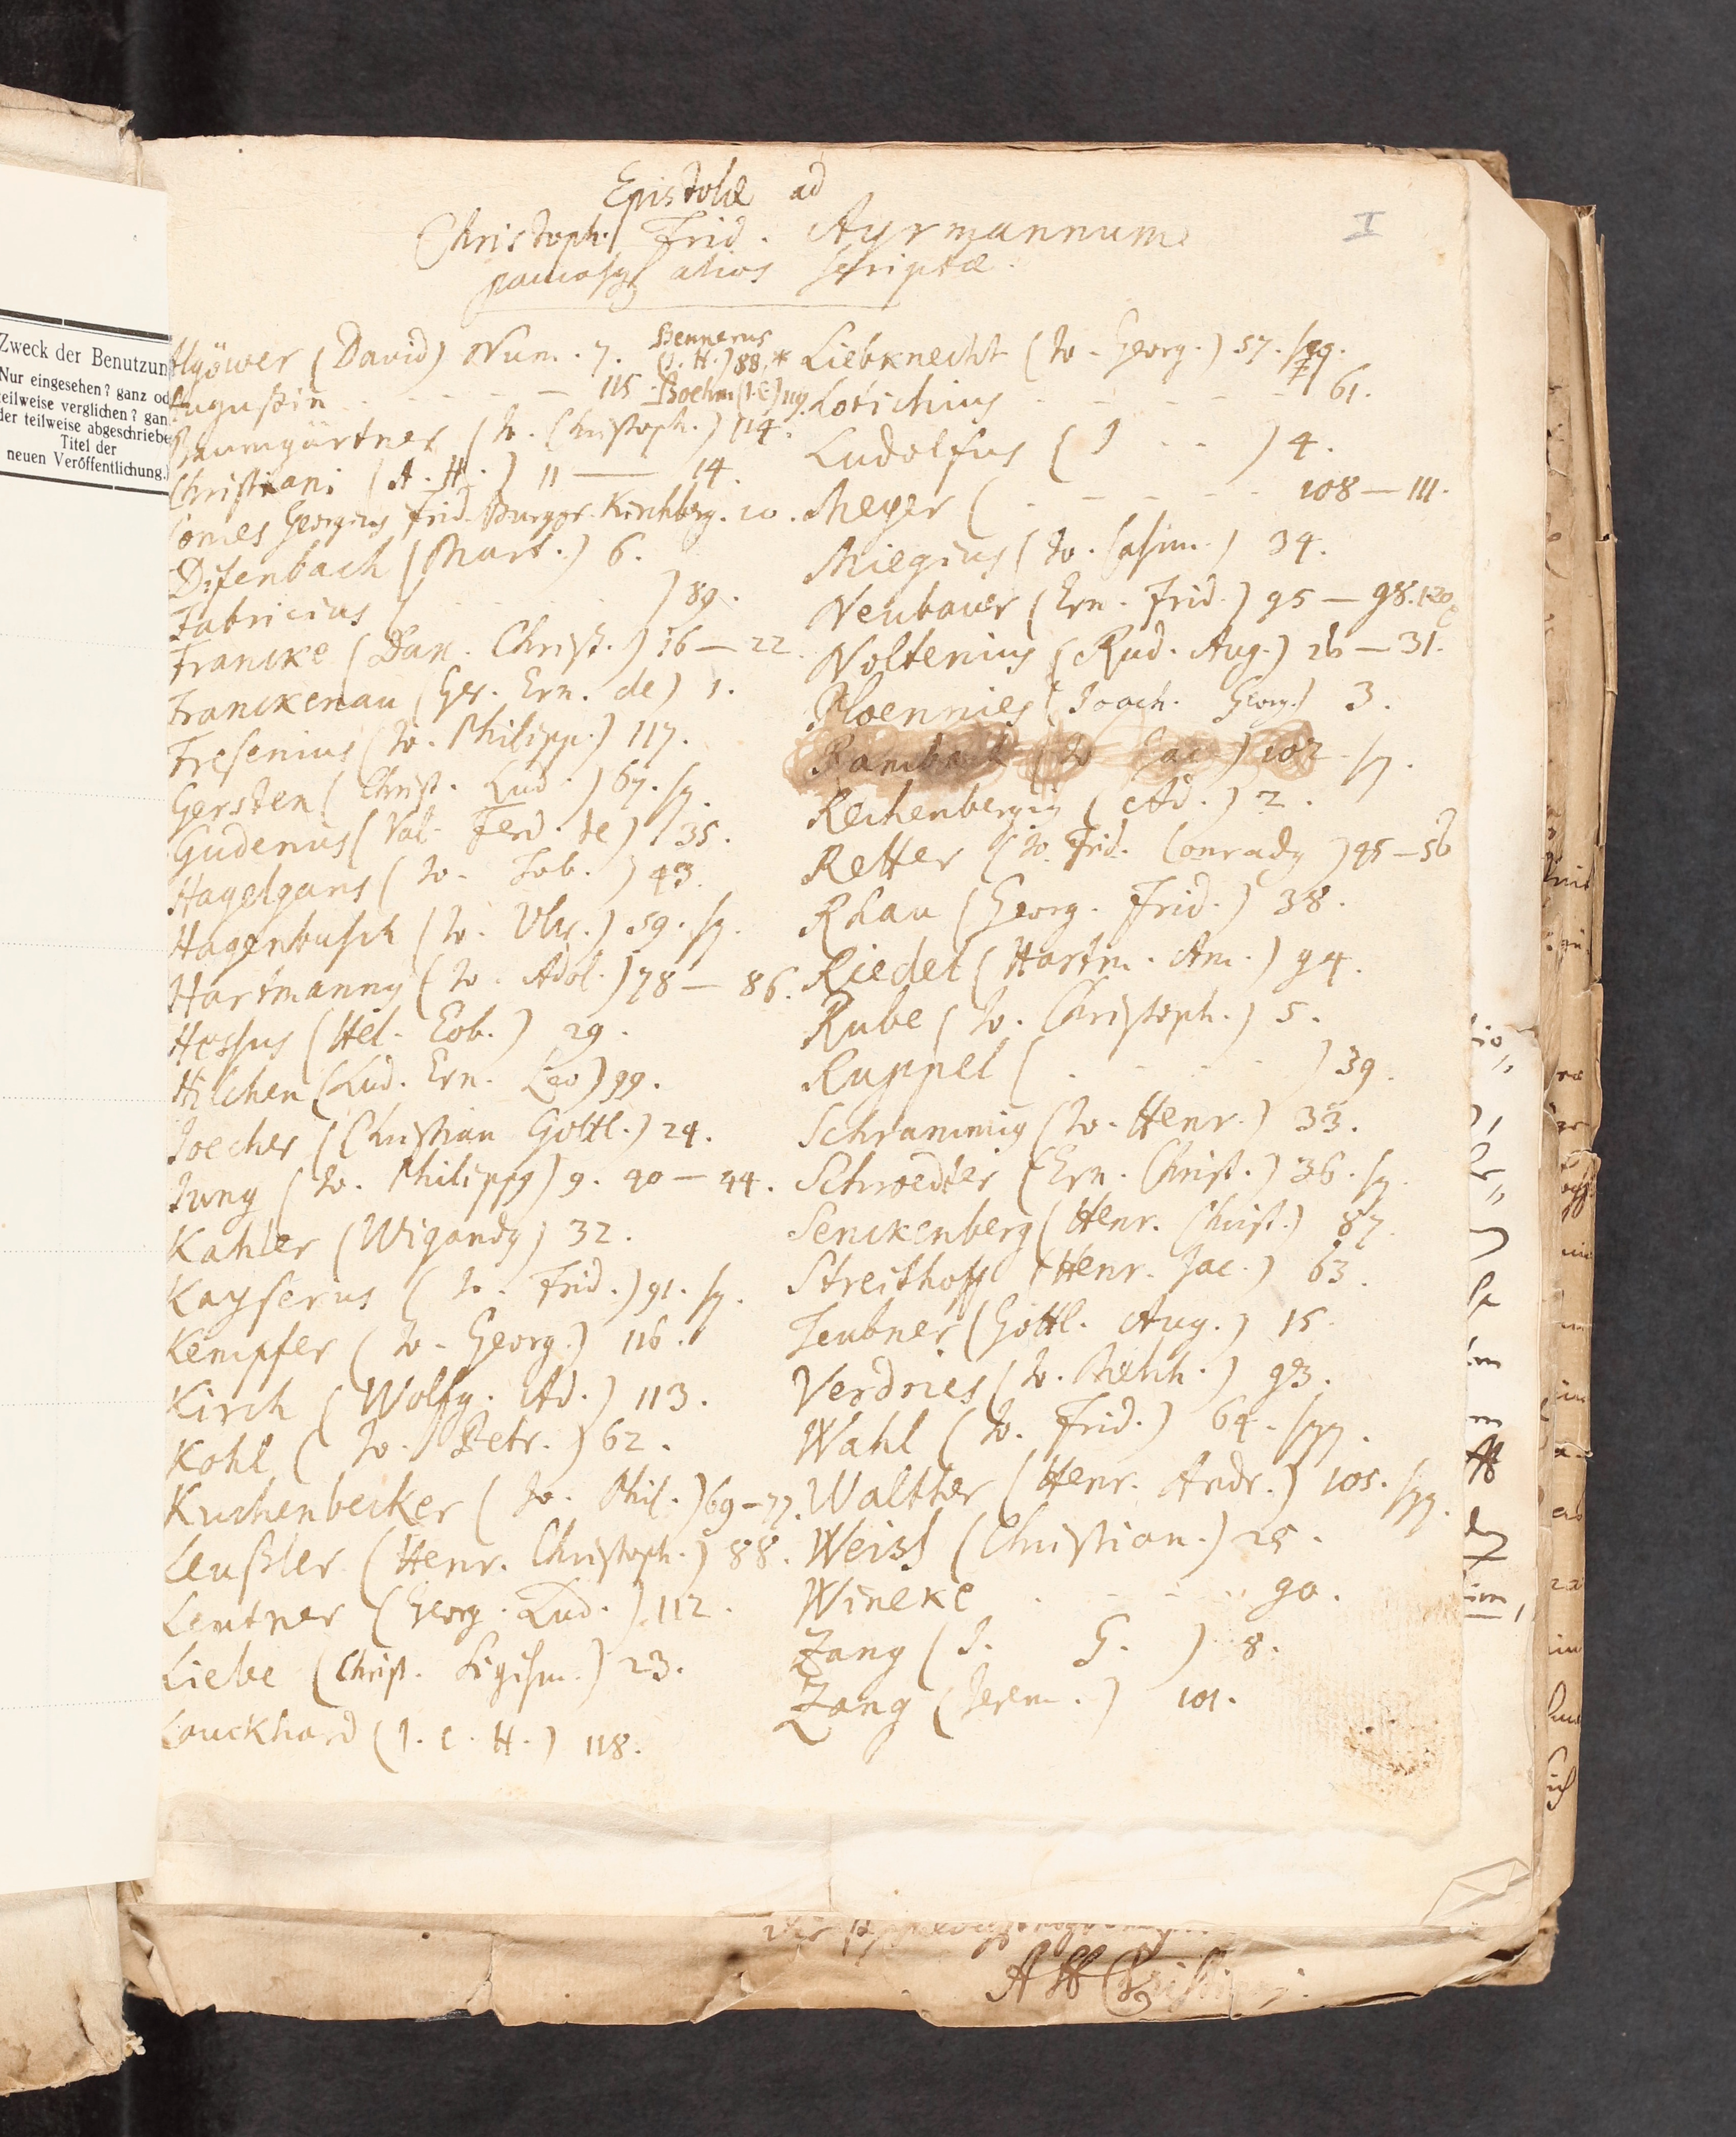 Epistolæ ad
Christoph. Frid. Ayrmannum
paucosq alios scriptæ.
I
Algöwer (David) Num. 7.
Augustin - - - 115
Hennerus
(J. H.) 88.*
Boehm (J. C.) 119.
Baumgärtner (Io. Christoph.) 114.
Christiani (A. H.) 11 — 14.
Comes Georgius Frid. Burggr. Kirchberg. 10.
Difenbach (Mart.) 6.
Fabricius ( . . . ) 89.
Francke (Dan. Christ.) 16 — 22.
Franckenau (Ger. Ern. de) 1.
Fresenius (Io. Philipp.) 117.
Gersten (Christ. Lud.) 67. sq.
Gudenus (Val. Ferd. de) 35.
Hagelgans (Io. ) 43.
Hagenbusch (Io. Ulr.) 59. sq.
Hartmannus (Io. Adol.) 78 — 86.
Hessus (Hel. Eob.) 29.
Hilchen (Lud. Ern. Leo) 99.
Joecher (Christian Gottl.) 24.
Jung (Io. Philippus) 9. 40 — 44.
Kahler (Wigandus) 32.
Kayserus (Io. Frid.) 91. sq.
Kempfer (Io. Georg.) 116.
Kirch (Wolfg. Ad.) 113.
Kohl (Io. Petr.) 62.
Kuchenbecker (Io. Phil.) 69 — 77.
Leussler (Henr. Christoph.) 88.
Leutner (Georg. Lud.) 112.
Liebe (Christ. Sigism.) 23.
Lauckhard (J. C. H.) 118.
Liebknecht (Io. Georg.) 57. sqq.
Lotichius - - - 61.
Ludolfus (J . . ) 4.
Meyer ( - - - 108 — 111.
Miegius (Io. Casim.) 34.
Neubauer (Ern. Frid.) 95 — 98. 120
Noltenius (Rud. Aug.) 26 — 31.
Ploennies (Joach. Georg.) 3.
Rambach (Io Jac) 102. sq.
Rechenbergius (Ad.) 2.
Retter (Io. Frid. Conradus) 45 — 56
Rhau (Georg. Frid.) 38.
Riedel (Hartm. Am.) 94.
Rube (Io. Christoph.) 5.
Ruppel ( . . . ) 39.
Schrammius (Io. Henr.) 33.
Schroedter (Ern. Christ.) 36. sq.
Senckenberg (Henr. Christ.) 87.
Streithoff (Henr. Jac.) 63.
Teubner (Gottl. Aug.) 15.
Verdries (Io. Melch.) 93.
Wahl (Io. Frid.) 64. sqq.
Walther (Henr. Andr.) 105. sqq.
Weiss (Christian.) 25.
Wineke . . . 90.
Zang (J. G. ) 8.
Zang (Jerem.) 101.
Zweck der Benutzun
Nur eingesehen? ganz od
teilweise verglichen? gan
der teilweise abgeschriebe
Titel der
neuen Veröffentlichung.)